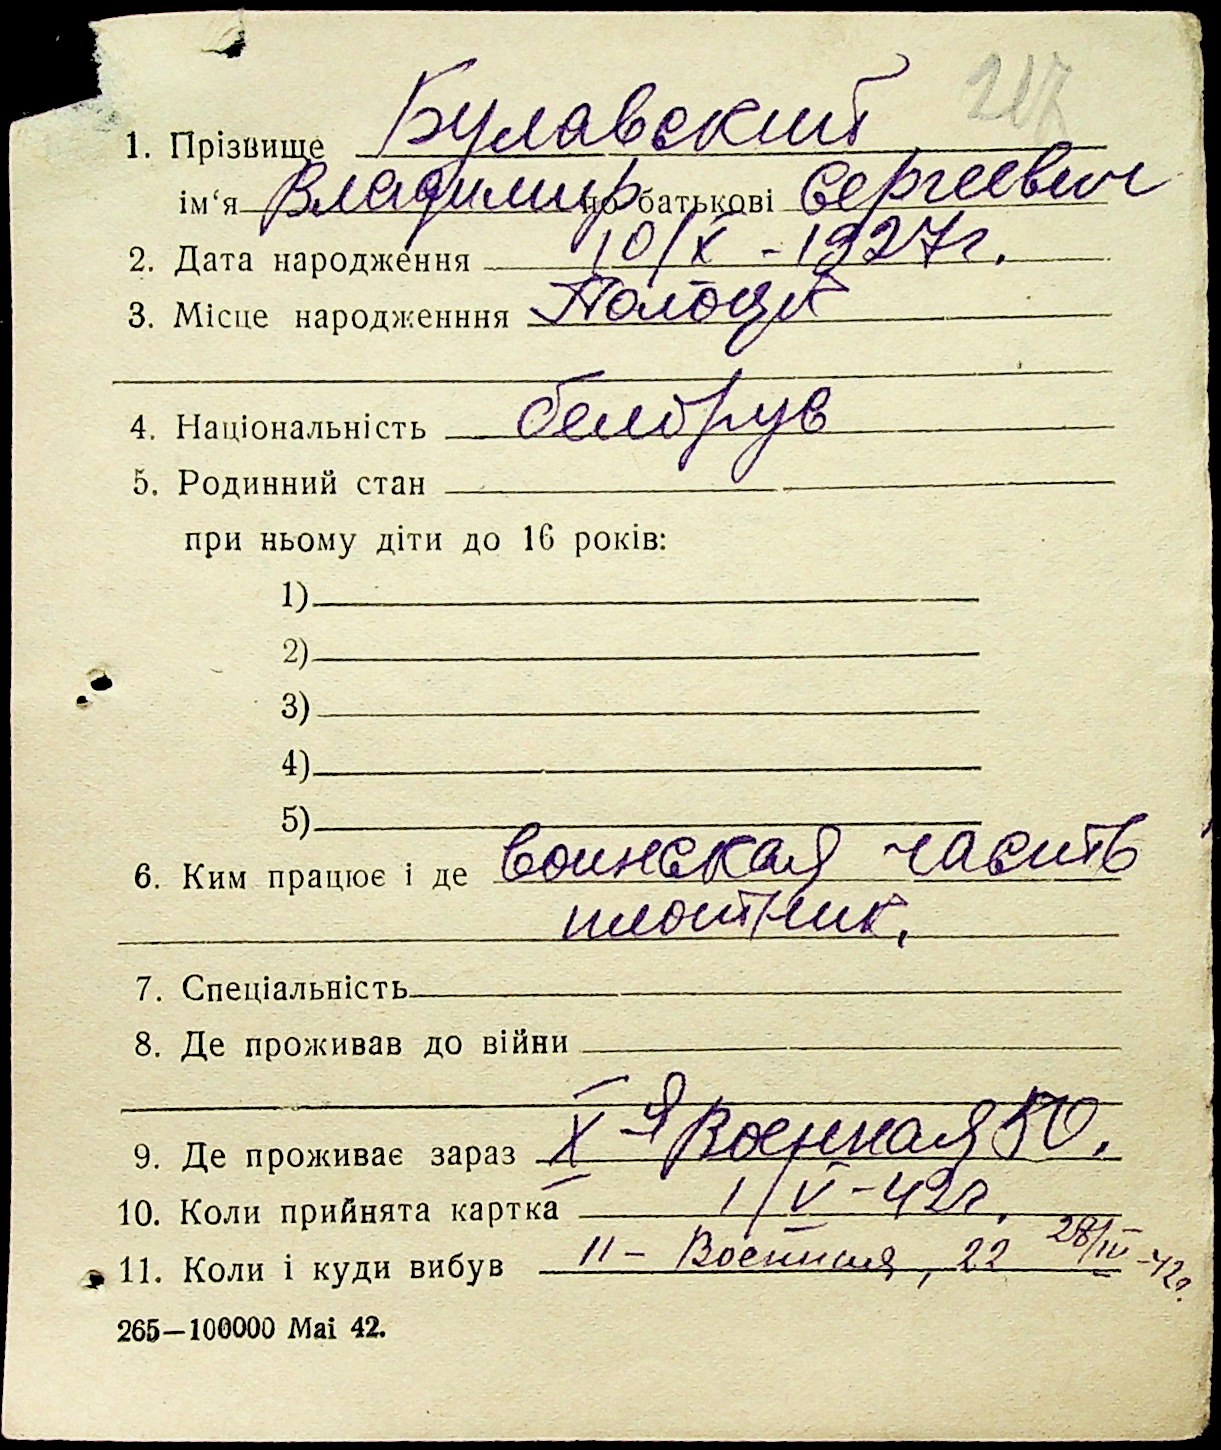 217
1. Прізвище Булавский
ім‘я Владимир по батькові Сергеевич
2. Дата народження 10/X - 1927г.
3. Місце народженння Полоцк
4. Національність белорус
5. Родинний стан
при ньому діти до 16 років:
1)
2)
3)
4)
5)
6. Ким працює і де воинская часть
плотник.
7. Спеціальність
8. Де проживав до війни
9. Де проживає зараз X-я Военная 50.
10. Коли прийнята картка 1/V-42г.
11. Коли і куди вибув 11- Военная, 22 28/IV-42г.
265—100000 Маі 42.